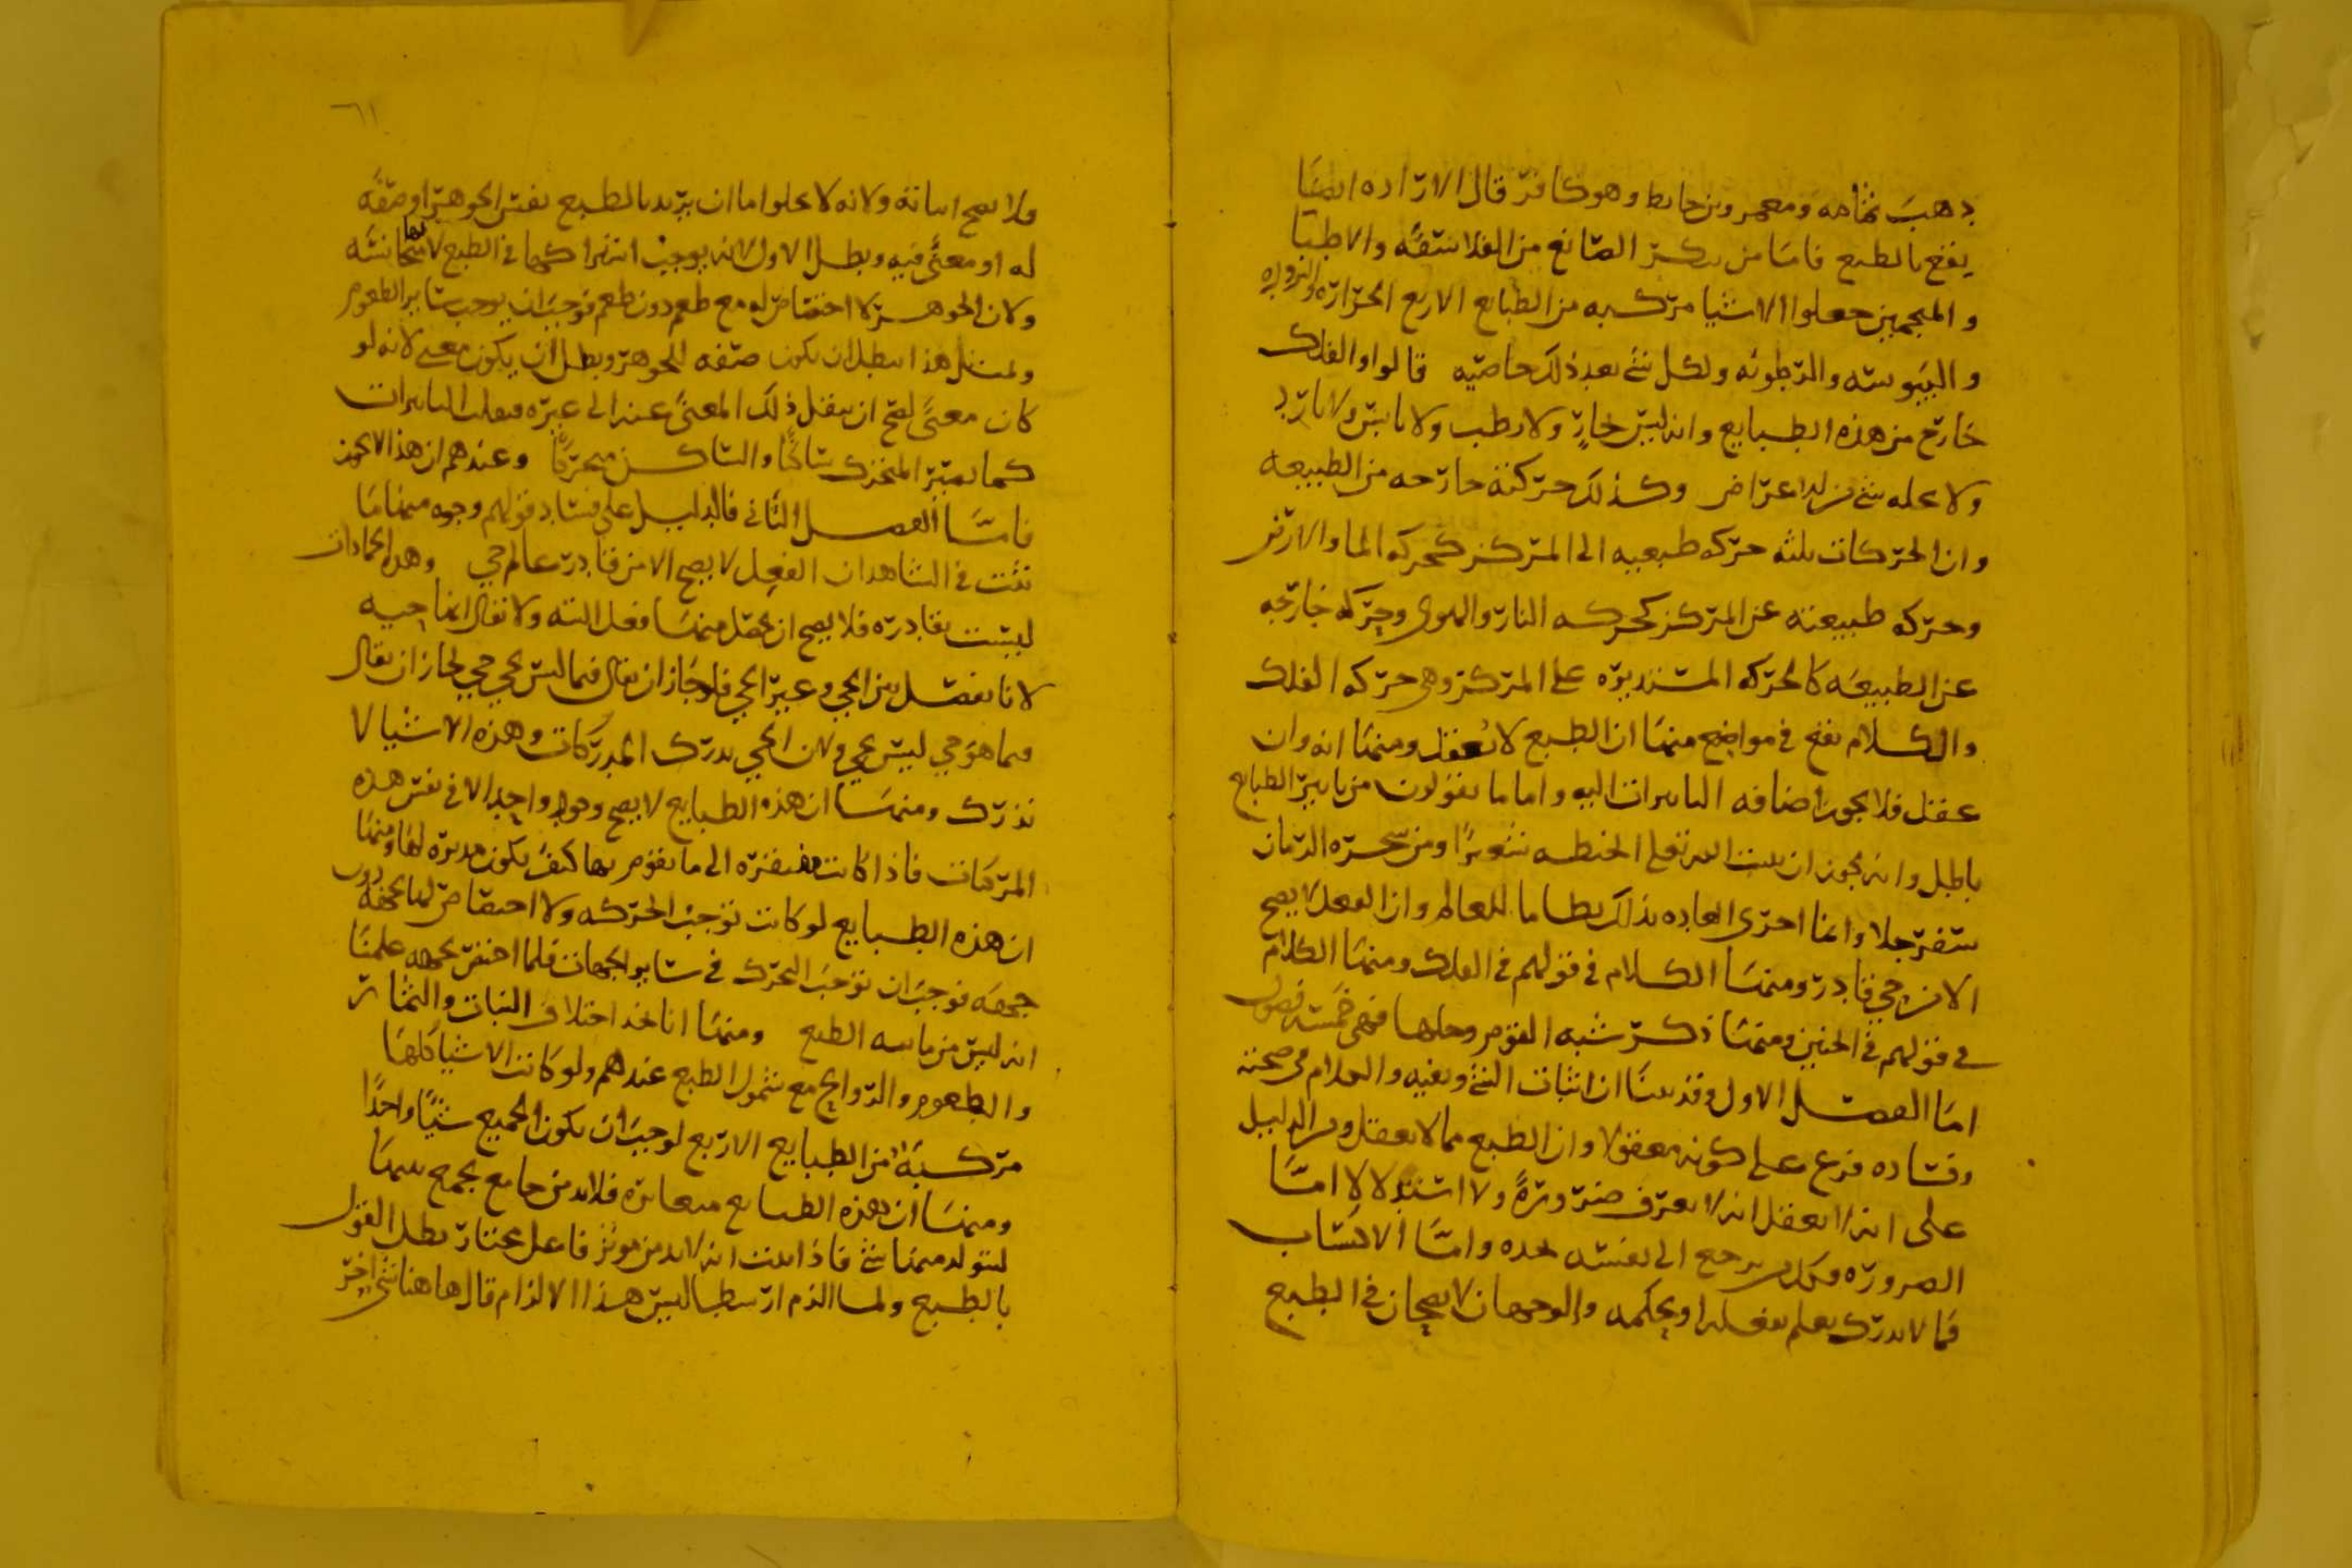 ذهب ثمامه ومعمر وبن خابط وهو كافر قال الاراده ايضا
يقع بالطبع فاما من ينكر الصانع من الفلاسفه والاطبا
والمنجمين جعلوا الاشيا مركبه من الطبايع الاربع الحراره والبروده
واليبوسه والرطوبه ولكل شي بعد ذلك خاصيه قالوا والفلك
خارج من هذه الطبايع وانه ليس بحار ولا رطب ولا يابس ولا بارد
ولا يحله شي من الاعراض وكذلك حركته خارجه من الطبيعه
وان الحركات ثلثه حركه طبيعيه الى المركز كحركه الما والارض
وحركه طبيعيه عن المركز كحركه النار والهوى وحركه خارجه
عن الطبيعه كالحركه المستديره على المركز وهي حركه الفلك
والكلام يقع في مواضع منها ان الطبع لا يعقل ومنها انه وان
عقل فلا يجوز اضافه التاثيرات اليه واما ما يقولون من تاثير الطبايع
باطل وانه يجوز ان ينبت الله تعلى الحنطه شعيرا ومن شجره الرمان
سفرجلا وانما اجرى العاده بذلك نظاما للعالم وان الفعل لا يصح
الا من حي قادر ومنها الكلام في قولهم في الفلك ومنها الكلام
في قولهم في الجنين ومنها ذكر شبه القوم وحلها فهي خمسه فصول
اما الفصل الاول فقد بينا ان اثبات الشي ونفيه والكلام في صحته
وفساده فرع على كونه معقولا وان الطبع مما لا يعقل والدليل
على انه لا يعقل انه لا يعرف ضروره ولا استدلالا اما
الضروره فكل يرجع الى نفسه يجده واما الاكتساب
فما لا يدرك يعلم بفعله او بحكمه والوجهان لا يصحان في الطبع
٦١
فلا يصح اثباته ولانه لا يخلوا اما ان يريد بالطبع نفس الجوهر او صفه
له او معنى فيه وبطل الاول لانه يوجب اشتراكهما في الطبع لتجانسها
ولان الجوهر لا اختصاص له مع طعم دون طعم فوجب ان يوجب ساير الطعوم
وبمثل هذا يبطل ان يكون صفه للجوهر وبطل ان يكون معنى لانه لو
كان معنى لصح ان ينقل ذلك المعنى عنه الى غيره فيقلب التاثيرات
كما يصير المتحرك ساكنا والساكن متحركا وعندهم ان هذا لا يجوز
فاما الفصل الثاني فالدليل على فساد قولهم وجوه منها ما
ثبت في الشاهد ان الفعل لا يصح الا من قادر عالم حي وهذه الجمادات
ليست بقادره فلا يصح ان يحصل منها فعل البته ولا يقال انها حيه
لانا نفصل بين الحي وغير الحي فلو جاز ان يقال فيما ليس بحي حي لجاز ان يقال
فيما هو حي ليس بحي ولان الحي يدرك المدركات وهذه الاشيا لا
تدرك ومنها ان هذه الطبايع لا يصح وجود واحد الا في نفس هذه
المركبات فاذا كانت مفتقره الى ما تقوم بها كيف يكون مدبره لها ومنها
ان هذه الطبايع لو كانت توجب الحركه ولا اختصاص لها بجهه دون
جهه فوجب ان توجب التحرك في ساير الجهات فلما اختص بجهه علمنا
انه ليس من تاثير الطبع ومنها انا نجد اختلاف النبات والثمار
والطعوم والروايح مع شمول الطبع عندهم ولو كانت الاشيا كلها
مركبه من الطبايع الاربع لوجب ان يكون الجميع شيا واحدا
ومنها ان هذه الطبايع متغايره فلا بد من جامع يجمع بينها
ليتولد منها شي فاذا ثبت انه لا بد من موثر فاعل مختار بطل القول
بالطبع ولما الزم ارسطاليس هذا الالزام قال هاهنا شي اخر